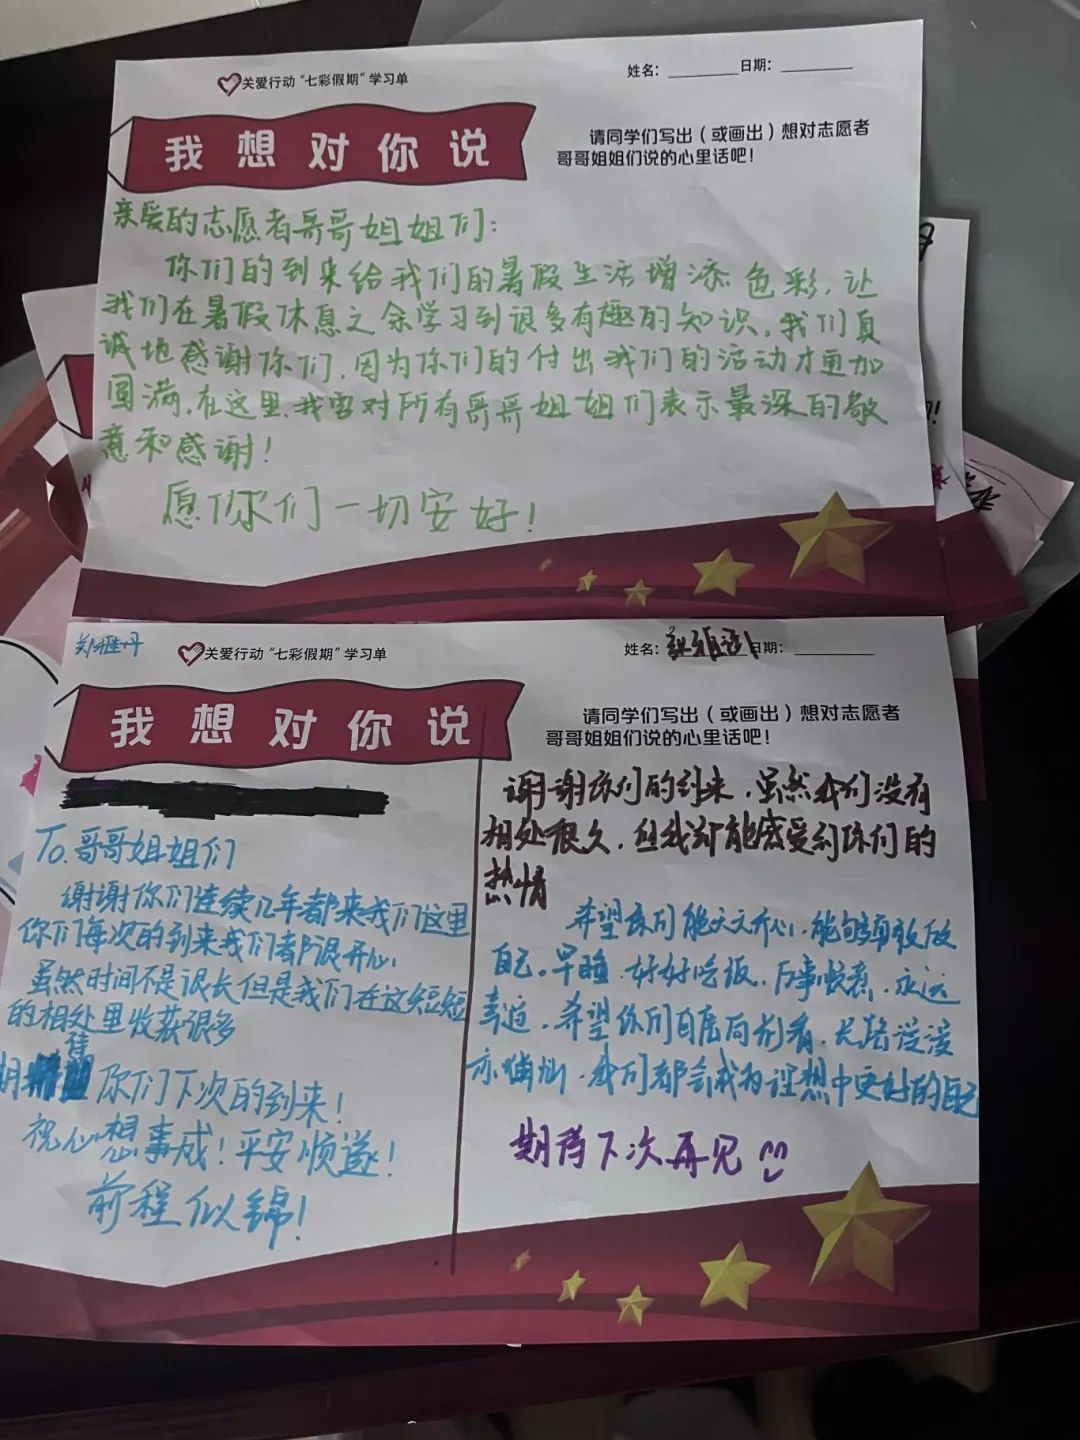 关爱行动“七彩假期”学习单
姓名：________ 日期：________
我想对你说
请同学们写出（或画出）想对志愿者
哥哥姐姐们说的心里话吧！
亲爱的志愿者哥哥姐姐们：
你们的到来给我们的暑假生活增添色彩，让
我们在暑假休息之余学习到很多有趣的知识。我们真
诚地感谢你们，因为你们的付出我们的活动才更加
圆满。在这里，我要对所有哥哥姐姐们表示最深的敬
意和感谢！
愿你们一切安好！
关爱行动“七彩假期”学习单
姓名： 日期：________
我想对你说
请同学们写出（或画出）想对志愿者
哥哥姐姐们说的心里话吧！
To.哥哥姐姐们
谢谢你们连续几年都来我们这里
你们每次的到来我们都很开心
虽然时间不是很长但是我们在这短短
的相处里收获很多
期待你们下次的到来！
祝心想事成！平安顺遂！
前程似锦！
谢谢你们的到来，虽然我们没有
相处很久，但我却能感受到你们的
热情
希望你们能天天开心，能够勇敢做
自己。早睡，好好吃饭，万事胜意，永远
幸运，希望你们自有尚有，长路漫漫
亦灿灿，我们都会成为理想中更好的自己
期待下次再见